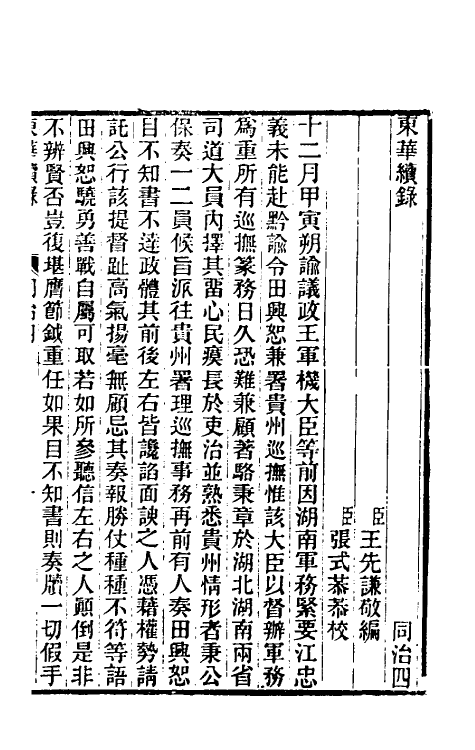 東華續錄
同治四
臣王先謙敬編
臣張式恭恭校
十二月甲寅朔諭議政王軍機大臣等前因湖南軍務緊要江忠
義未能赴黔諭令田興恕兼署貴州巡撫惟該大臣以督辦軍務
爲重所有巡撫篆務日久恐難兼顧著駱秉章於湖北湖南兩省
司道大員內擇其畱心民瘼長於吏治並熟悉貴州情形者秉公
保奏一二員候旨派往貴州署理巡撫事務再前有人奏田興恕
目不知書不達政體其前後左右皆讒諂面諛之人憑藉權勢請
託公行該提督趾高氣揚毫無顧忌其奏報勝仗種種不符等語
田興恕驍勇善戰自屬可取若如所參聽信左右之人顚倒是非
不辨賢否豈復堪膺節鉞重任如果目不知書則奏牘一切假手
東華續錄 同治四 一